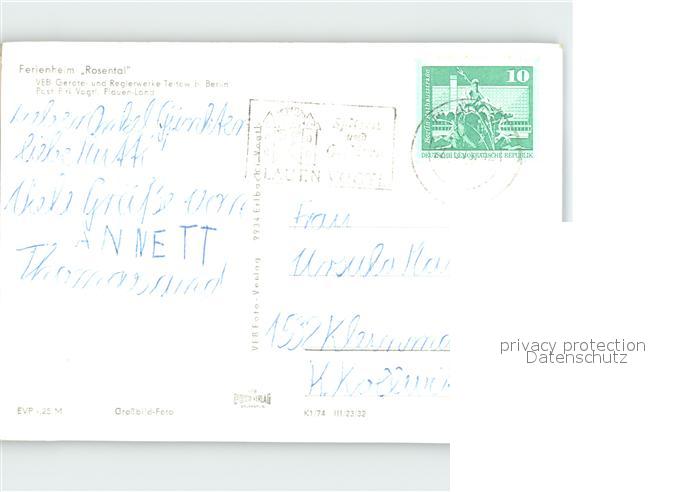 Ferienheim „Rosental"
VEB Geräte- und Reglerwerke Teltow b. Berlin
Post Pirk Vogtl. Plauen-Land
lieber Onkel Günther
liebe Mutti
Viele Grüße von
ANNETT
Thomas und
PLAUEN VOGTL
VEB Foto-Verlag 9934 Erlbach i. Vogtl.
10
Berlin, Rathausstraße
DEUTSCHE DEMOKRATISCHE REPUBLIK
Frau
Ursula
1532
EVP -,25 M
Großbild-Foto
K1/74 III/23/32
privacy protection
Datenschutz